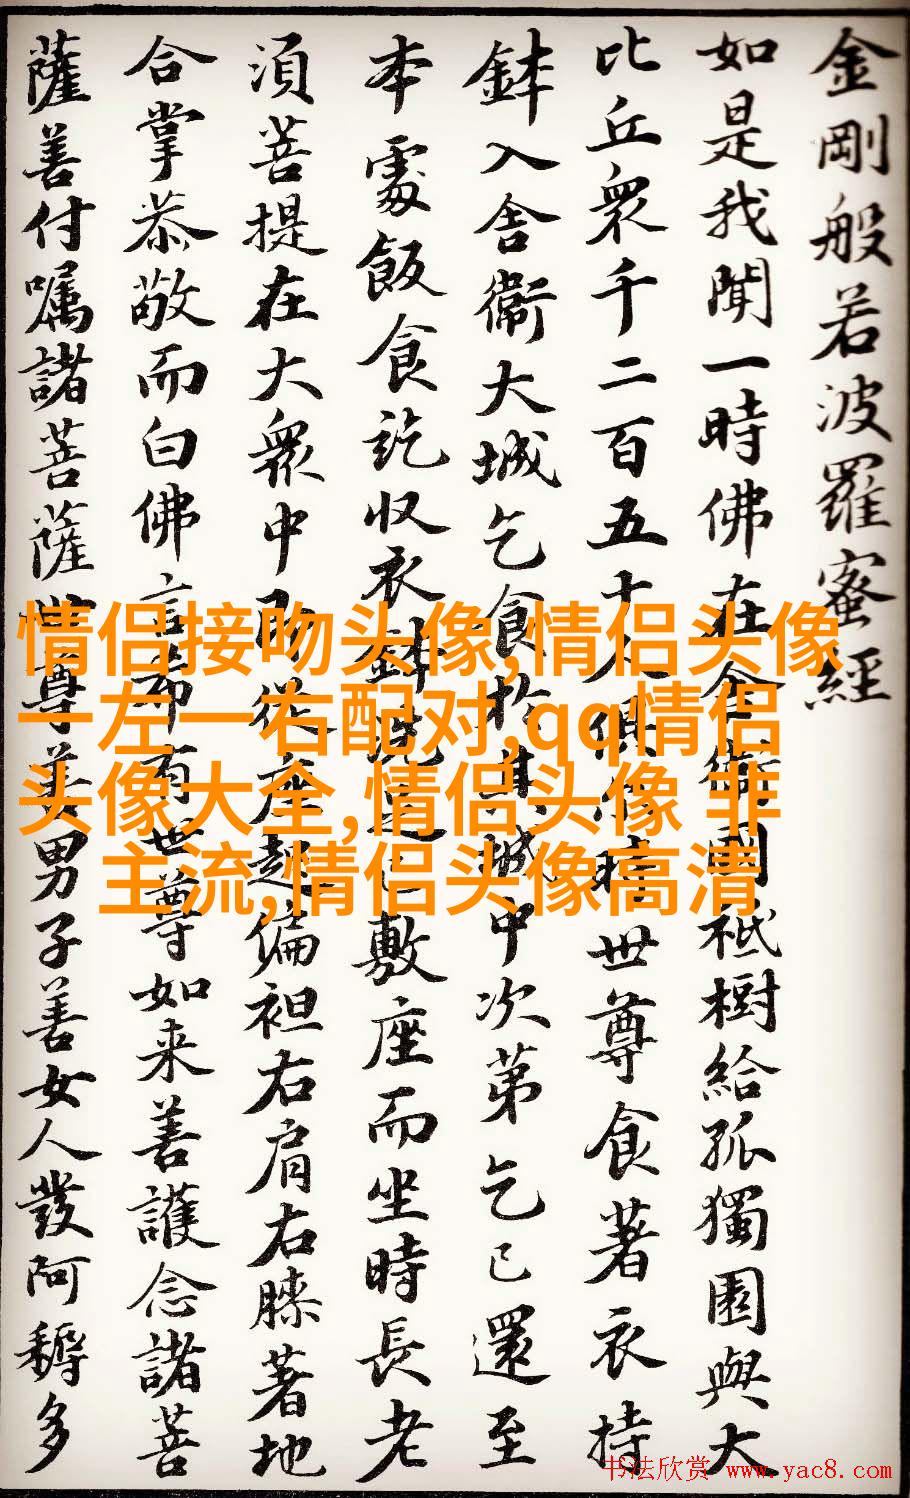 金剛般若波羅蜜經
如是我聞一時佛在舍衛國祇樹給孤獨園與大
比丘眾千二百五十人俱尒時世尊食著衣持
鉢入舍衛大城乞食於其城中次第乞已還至
本處飯食訖収衣鉢洗足已敷座而坐時長老
須菩提在大衆中即從座起偏袒右肩右膝著地
合掌恭敬而白佛言希有世尊如来善護念諸菩
薩善付囑諸菩薩世尊善男子善女人發阿耨多
情侣接吻头像,情侣头像
一左一右配对,qq情侣
头像大全,情侣头像 非
主流,情侣头像高清
书法欣赏 www.yac8.com